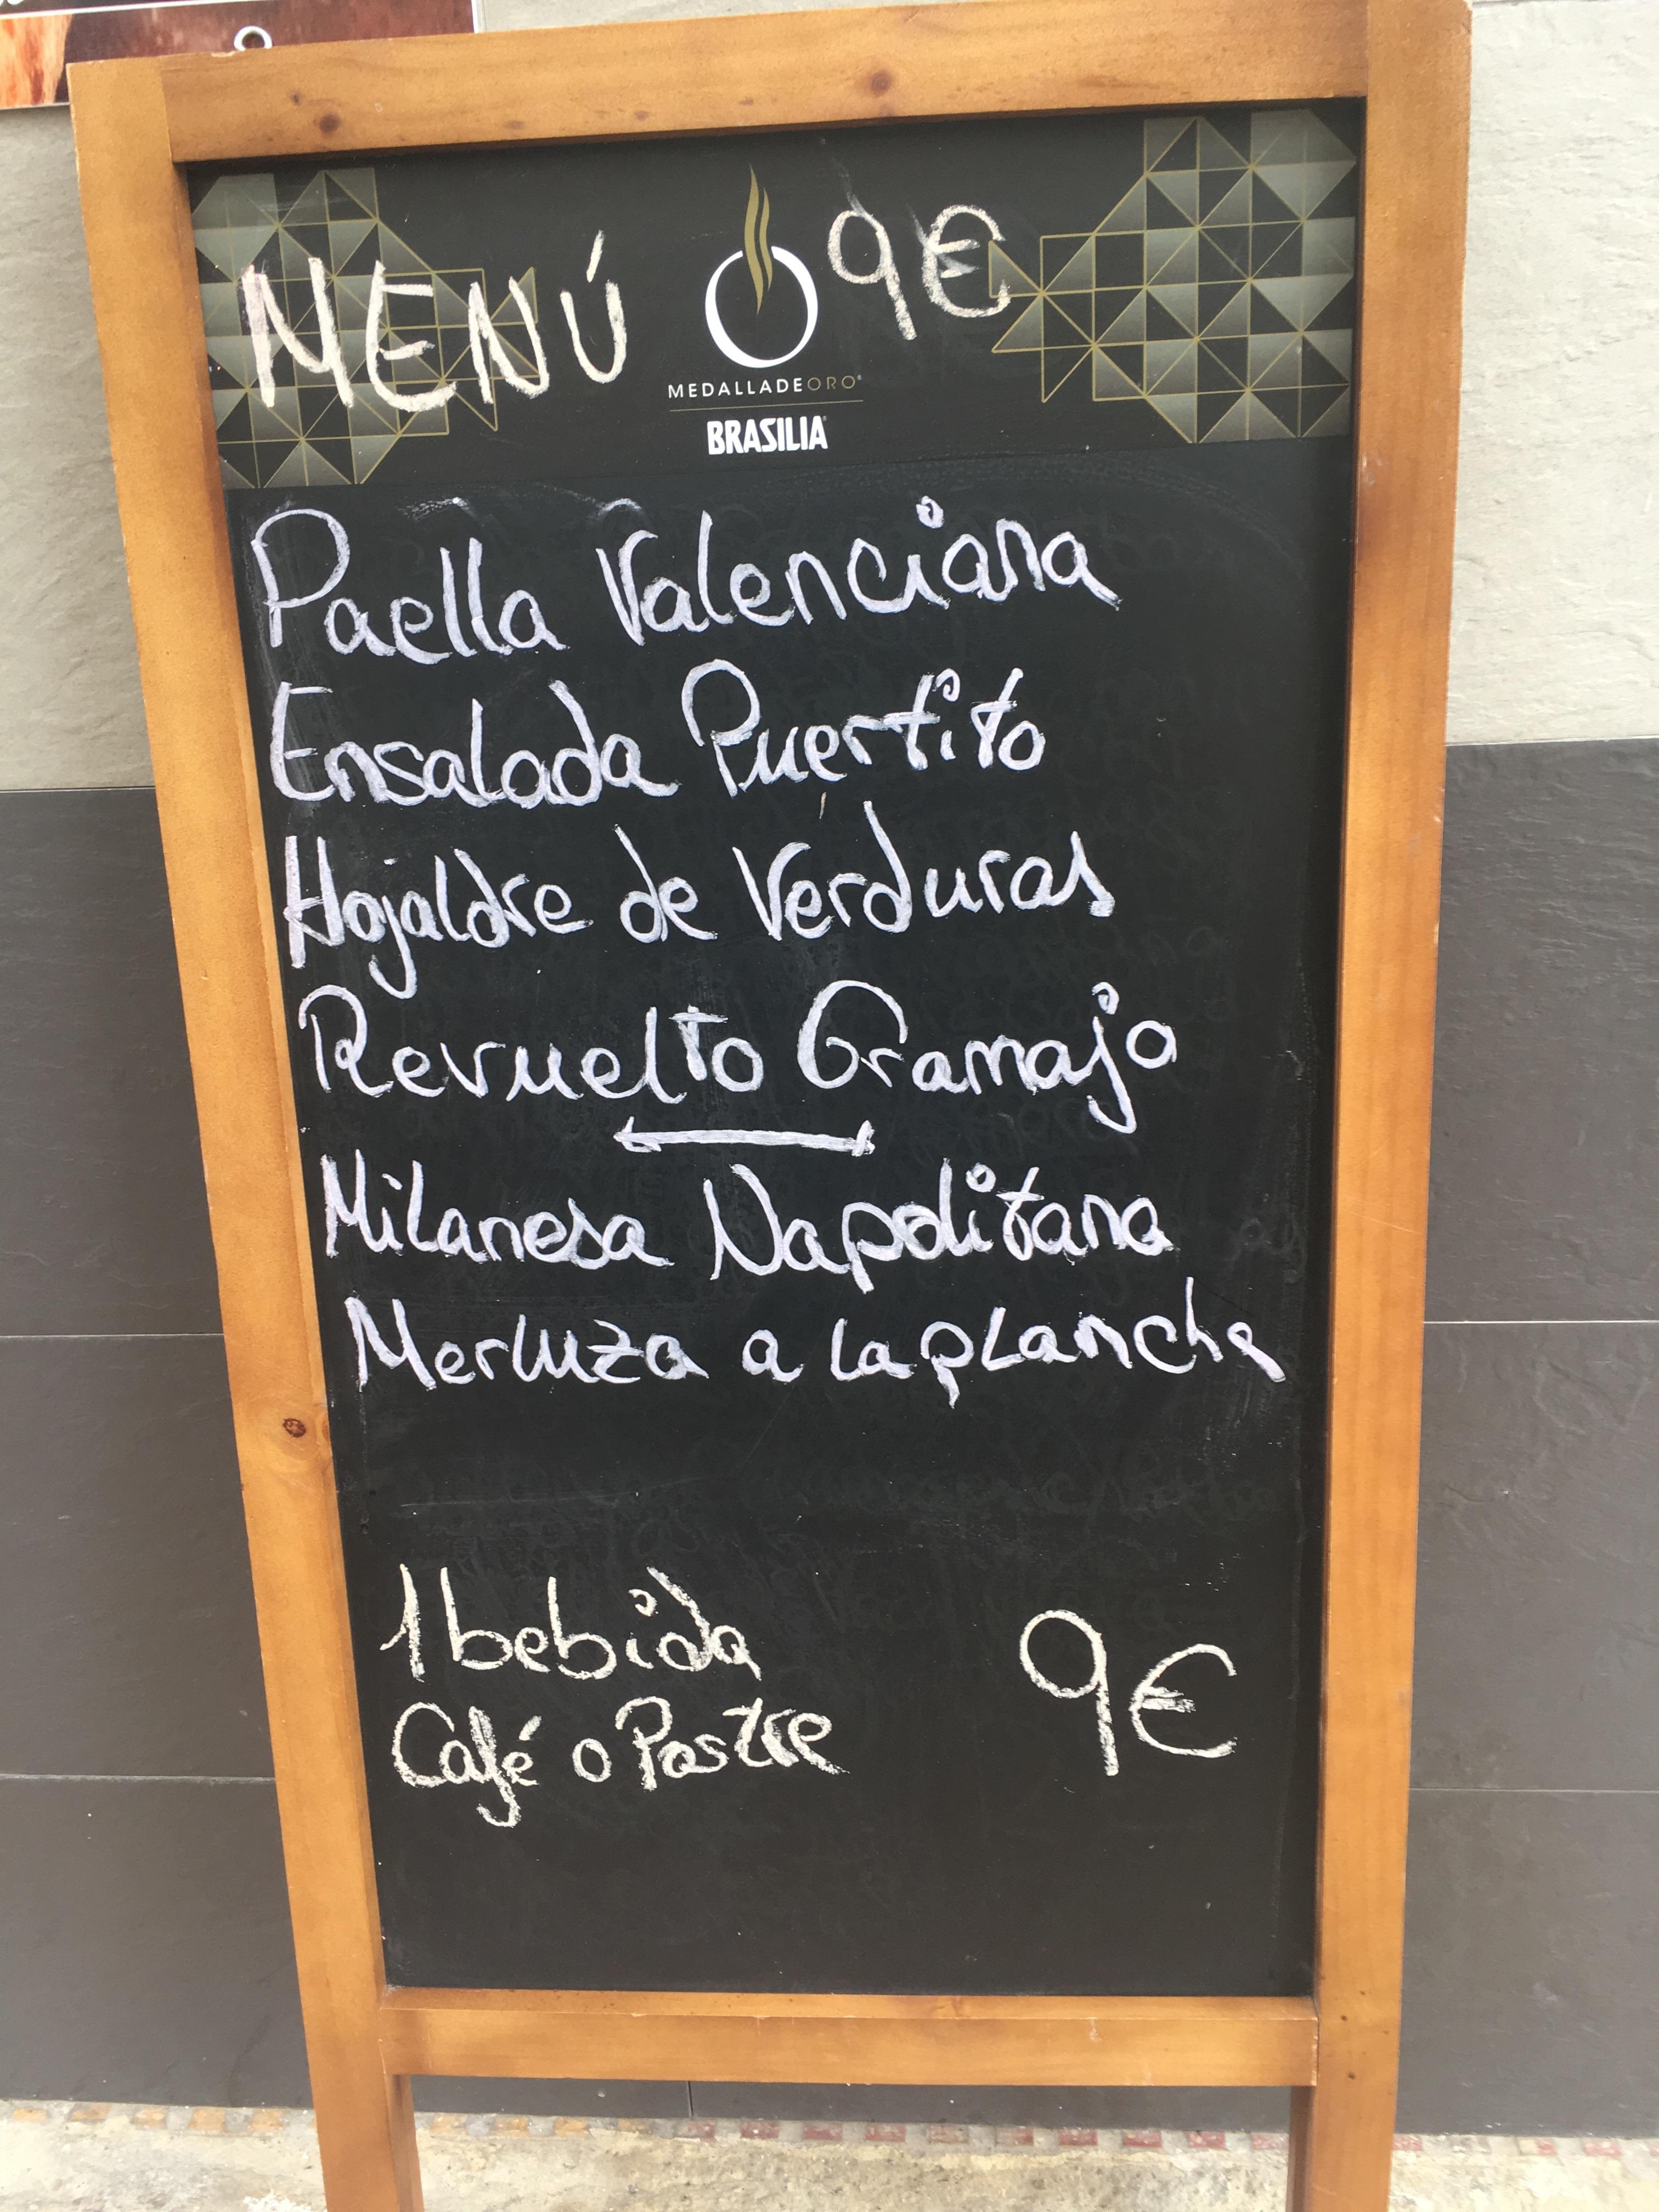 MENÚ 9€
MEDALLADEORO®
BRASILIA®
Paella Valenciana
Ensalada Puertito
Hojaldre de Verduras
Revuelto Gramajo
Milanesa Napolitana
Merluza a la plancha
1 bebida
Café o Postre 9€